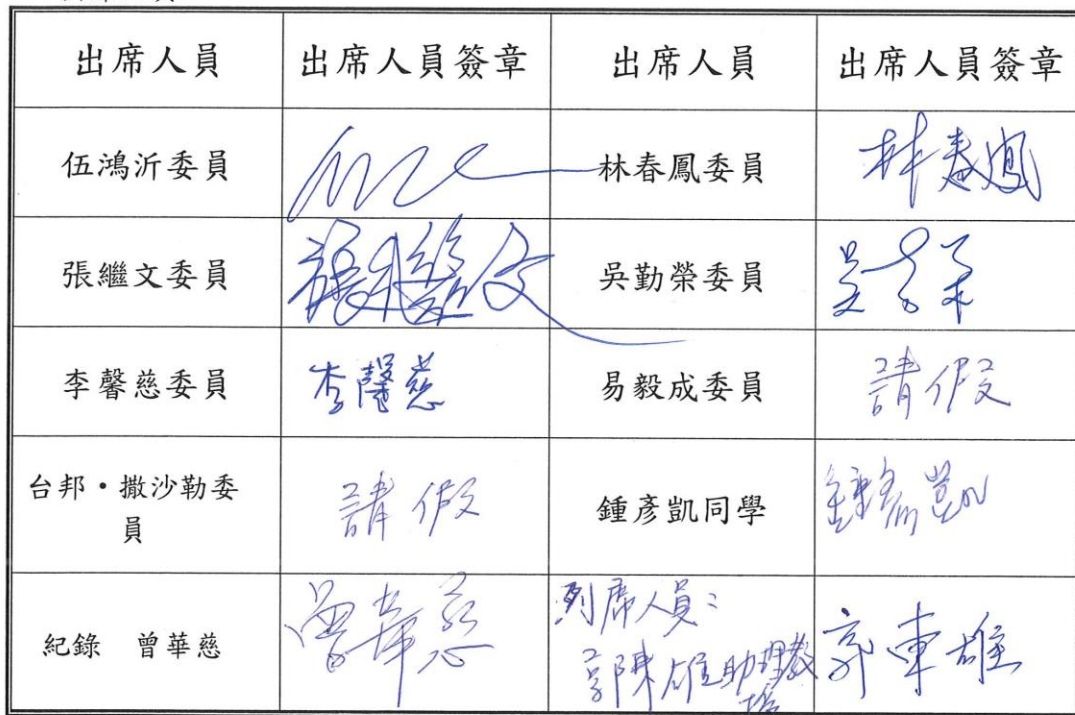 出席人員 出席人員簽章 出席人員 出席人員簽章
伍鴻沂委員 林春鳳委員 林春鳳
張繼文委員 張繼文 吳勤榮委員
李馨慈委員 李馨慈 易毅成委員 請假
台邦・撒沙勒委
員 請假 鍾彥凱同學 鍾彥凱
紀錄 曾華慈 曾華慈 列席人員: 郭東雄
雄助理教
授